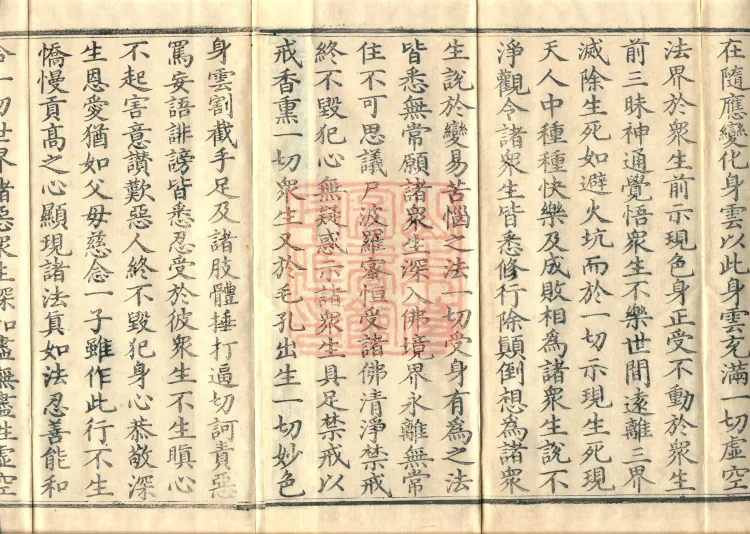 在隨應變化身雲以此身雲充滿一切虛空
法界於衆生前示現色身正受不動於衆生
前三昧神通覺悟衆生不樂世間遠離三界
滅除生死如避火坑而於一切示現生死現
天人中種種快樂及成敗相為諸衆生說不
淨觀令諸衆生皆悉修行除顛倒想為諸衆
生說於變易苦惱之法一切受身有為之法
皆悉無常願諸衆生深入佛境界永離無常
住不可思議尸波羅蜜恒受諸佛清淨禁戒
終不毀犯心無疑惑示諸衆生具足禁戒以
戒香熏一切衆生又於毛孔出生一切妙色
身雲割截手足及諸肢體捶打逼切訶責惡
罵妄語誹謗皆悉忍受於彼衆生不生瞋心
不起害意讚歎惡人終不毀犯身心恭敬深
生恩愛猶如父母慈念一子雖作此行不生
憍慢貢高之心顯現諸法真如法忍善能和
合一切世界諸惡衆生深知盡無盡性虛空